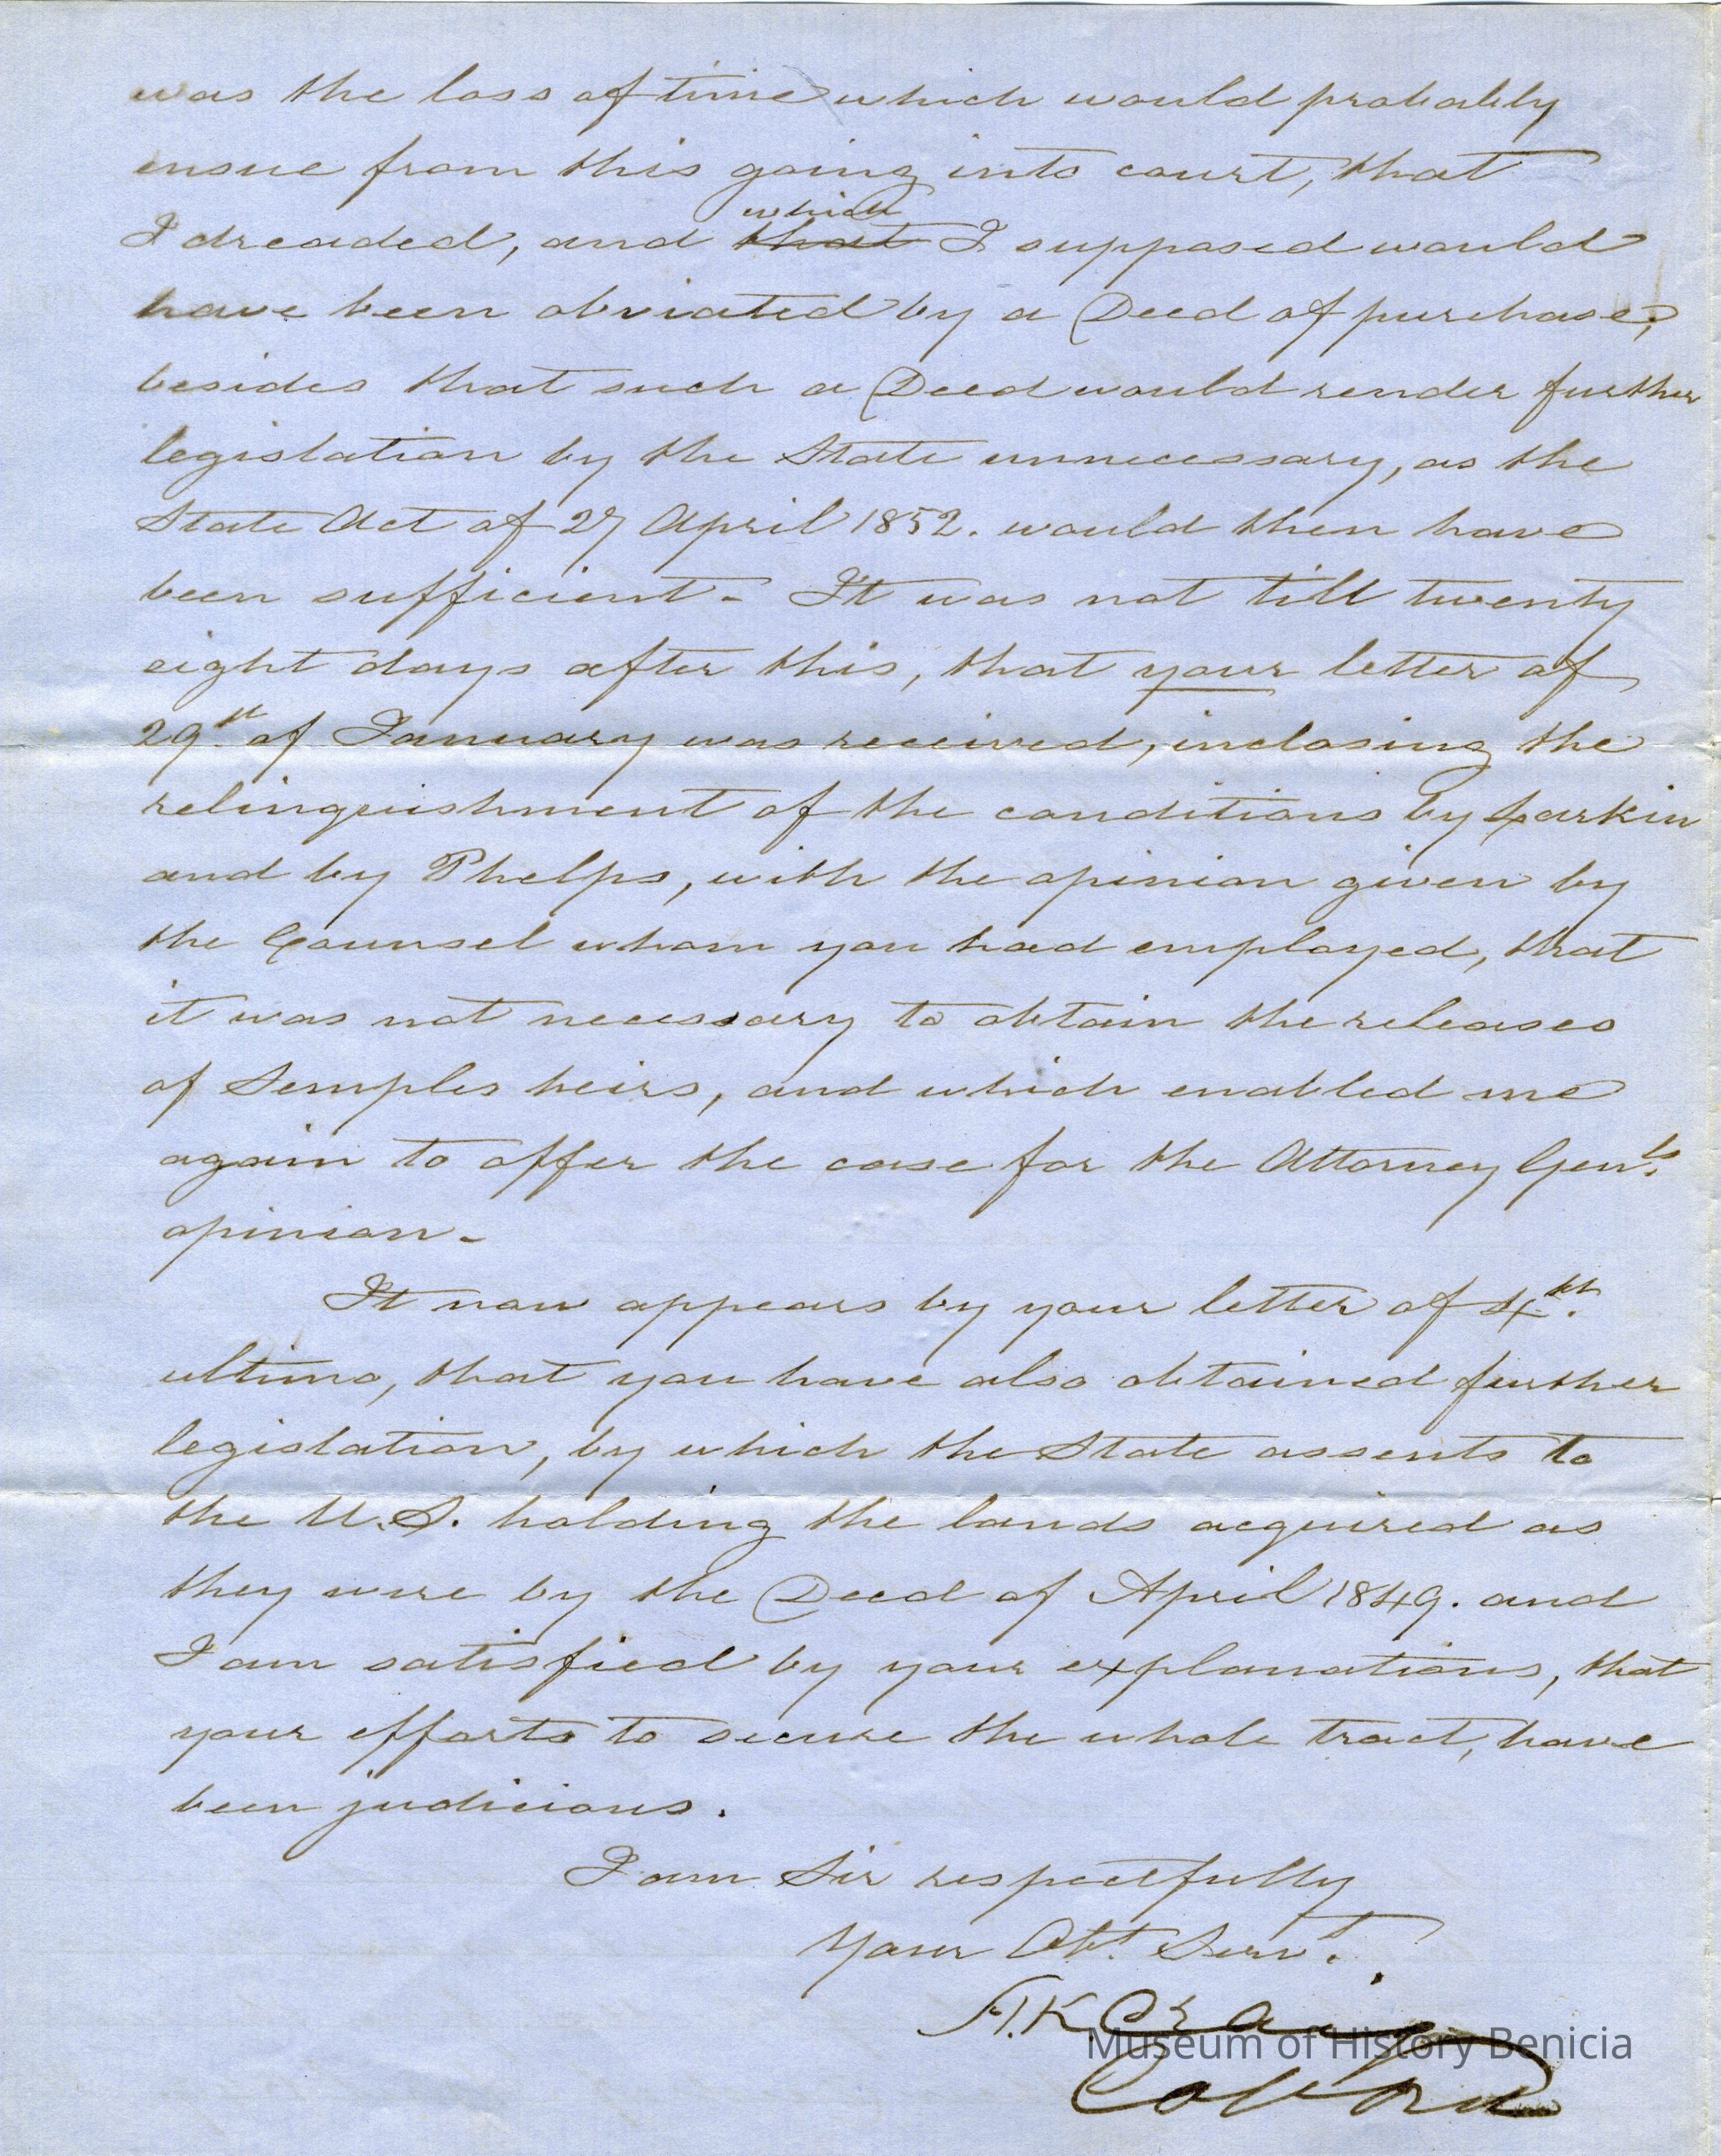 was the loss of time which would probably
ensue from this going into court, that
which
I dreaded, and that I supposed would
have been obviated by a Deed of purchase;
besides that such a Deed would render further
legislation by the State unnecessary, as the
State Act of 27 April 1852. would then have
been sufficient - It was not till twenty
eight days after this, that your letter of
29th. of January was received, inclosing the
relinquishment of the conditions by Larkin
and by Phelps, with the opinion given by
the Counsel whom you had employed, that
it was not necessary to obtain the releases
of Semples heirs, and which enabled me
again to offer the case for the Attorney Genls.
opinion -
It now appears by your letter of 4th.
ultimo, that you have also obtained further
legislation, by which the State assents to
the U.S. holding the lands acquired as
they were by the Deed of April 1849. and
I am satisfied by your explanations, that
your efforts to secure the whole tract, have
been judicious.
I am Sir respectfully
Your Obt. Servt.
H.K. Craig
Col Ord
Museum of History Benicia